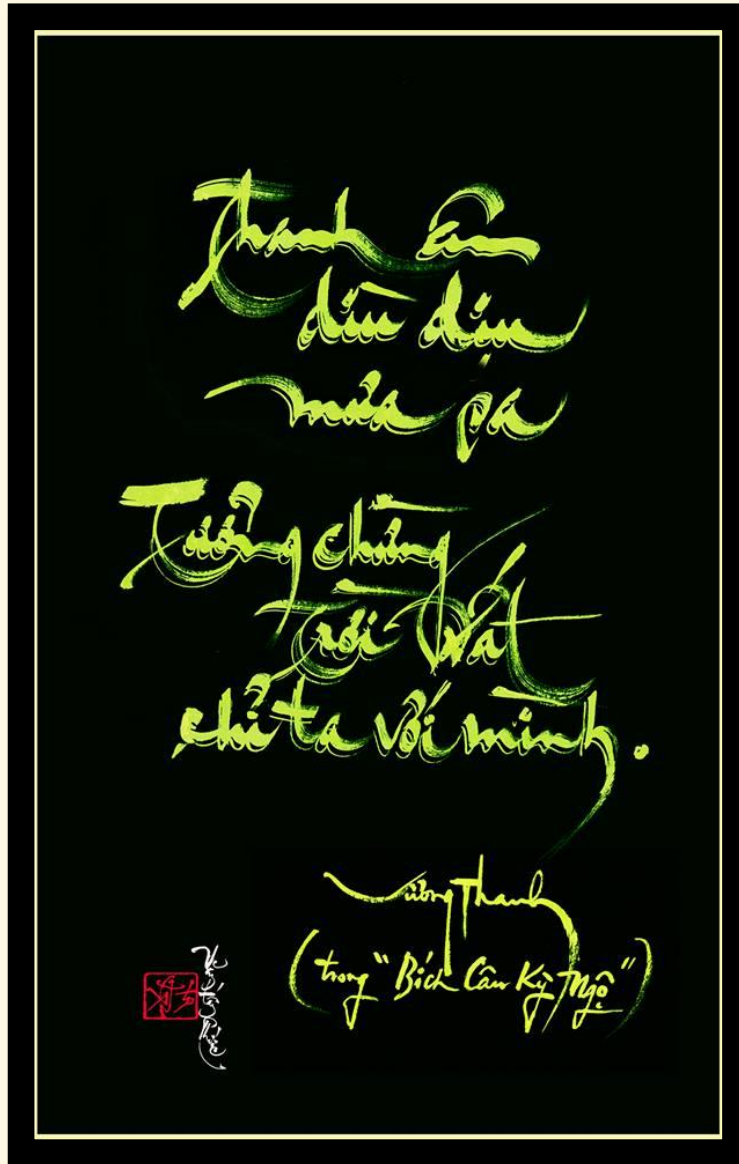 Thanh âm
dìu dịu
mưa pa
Tưởng chừng
trời đất
chỉ ta với mình.
Vương Thanh
(trong "Bích Câu Kỳ Ngộ")